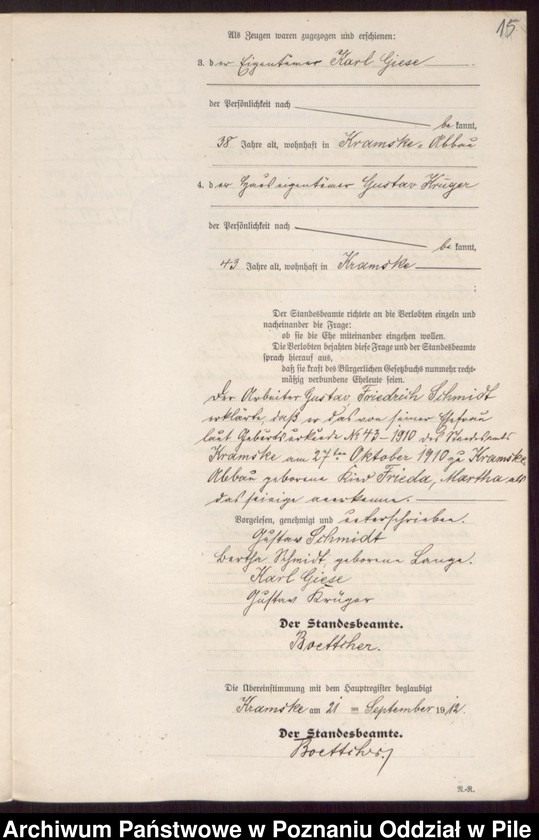 15
Als Zeugen waren zugezogen und erschienen:
3. der Eigentümer Karl Giese
der Persönlichkeit nach
be kannt,
38 Jahre alt, wohnhaft in Kramske-Abbau
4. der Hauseigentümer Gustav Krüger
der Persönlichkeit nach
be kannt,
43 Jahre alt, wohnhaft in Kramske
;
Der Standesbeamte richtete an die Verlobten einzeln und
nacheinander die Frage:
ob sie die Ehe miteinander eingehen wollen.
Die Verlobten bejahten diese Frage und der Standesbeamte
sprach hierauf aus,
daß sie kraft des Bürgerlichen Gesetzbuchs nunmehr recht-
mäßig verbundene Eheleute seien.
Der Arbeiter Gustav, Friedrich Schmidt
erklärte, daß er das von seiner Ehefrau
laut Geburtsurkunde No 43-1910 des Standesamts
Kramske am 27ten Oktober 1910 zu Kramske
Abbau geborene Kind Frieda, Martha als
das seinige anerkenne.
Vorgelesen, genehmigt und unterschrieben.
Gustav Schmidt
Bertha Schmidt, geborene Lange.
Karl Giese
Gustav Krüger
Der Standesbeamte.
Boettcher.
Die Übereinstimmung mit dem Hauptregister beglaubigt
Kramske am 21 ten September 1912.
Der Standesbeamte.
Boettcher
N.-R.
Archiwum Państwowe w Poznaniu Oddział w Pile